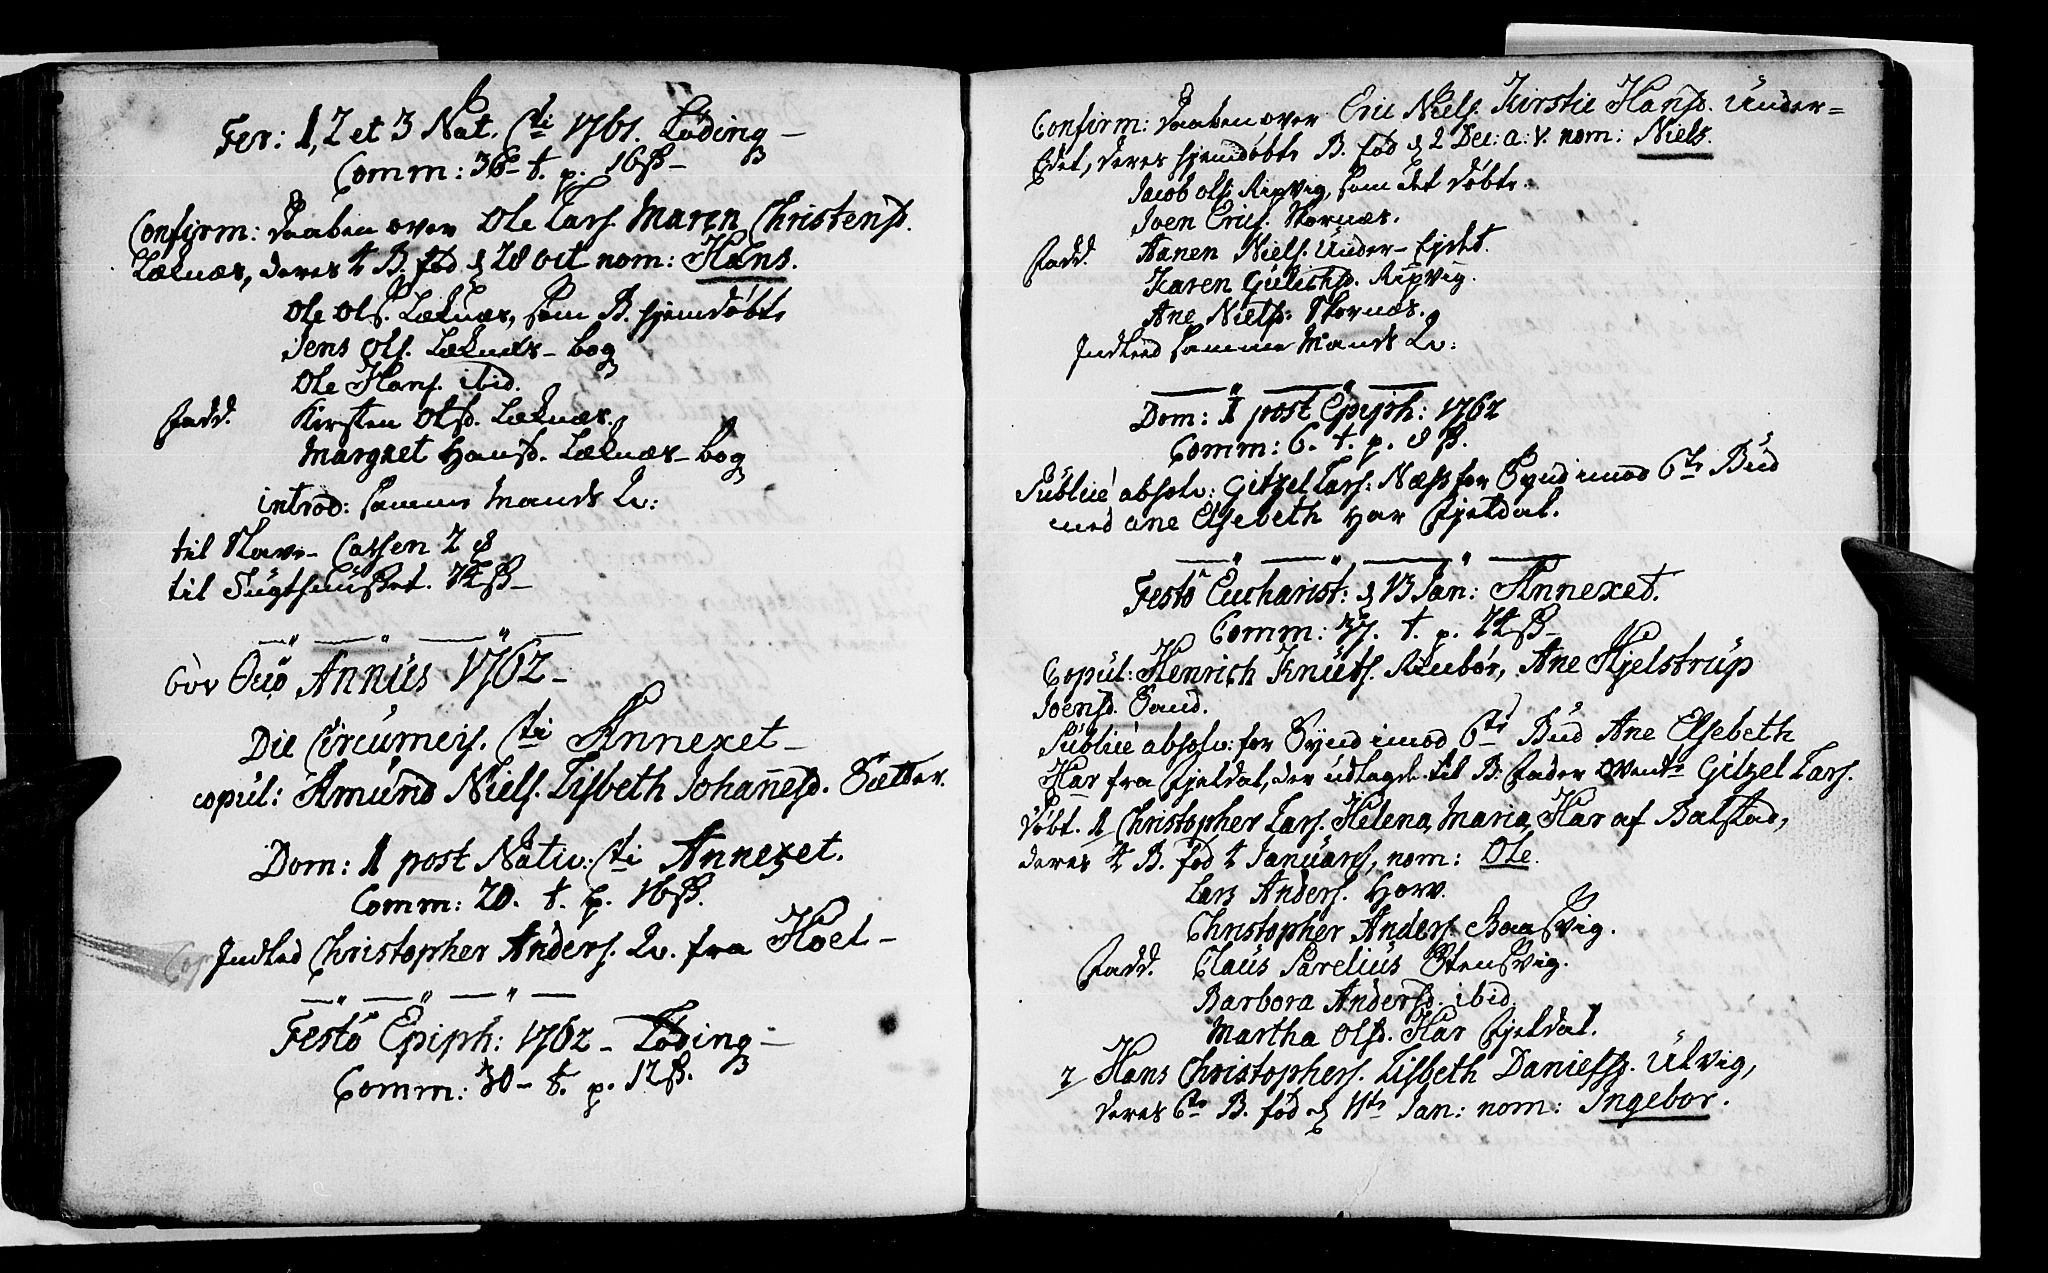 Fer: 1, 2 et 3 Nat. Cti 1761. Løding –
Comm: 36 – t. p. 16ß –
Confirm: Daaben over Ole Lars. Maren Christensd.
Læknæs, deres 4 B. fød d 28 oct nom: Hans.
Ole Ols. Læknæs, som B. hjemdøbte
Jens Ols. Læknæs – bog
Ole Hans. ibid.
Fadd. Kirsten Olsd. Læknæs.
Margret Hansd. Læknæs – bog
introd: samme Mands Qv:
til Skave – Cassen 2
til Tugthuuset. 74ß –
Annus 1762 –
Die Circumcis. Cti Annexet –
copul: Amund Niels. Lisbeth Johannesd. Sætter.
Dom: 1 post Nativ: Cti Annexet.
Comm: 20. t. p. 16ß.
Indled Christopher Anders. Qv. fra Hoel –
Festo Epiph: 1762 – Løding –
Comm: 30 – t. p. 12ß.
Confirm: Daaben over Eric Niels. Kirstie Hansd. Under=
Eidet, deres hjemdøbte B. fød d 2 Dec: a: v. nom: Niels.
Jacob Ols Ripvig, som det døbte.
Joen Erics. Stornæs.
Fadd. Aanen Niels. Under – Ejdet.
Karen Gulichsd. Ripvig.
Ane Nielsd: Stornæs.
Indleed samme Mands Qv:
Dom: 1 post Epiph: 1762
Comm: 6. t. p. 8 ß.
Publicè absolv: Gitzel Lars: Næss for Synd imod 6te Bud
med Ane Elsebeth Har Fjeldal.
Festo Eucharist: d 13 Jan: Annexet.
Comm: 37. t. p. 24ß –
Copul: Henrich Knuts. Ane Hjelstrup
Joensd. Sand.
Publicè absolv: for Synd imod 6te Bud Ane Elsebeth
Har fra Fjeldal, der udlagde til B. Fader ovente Gitzel Lars.
Døbt. 1 Christopher Lars. Helena Maria Har af Balstad,
deres 4 B. fød 4 Januarj, nom: Ole.
Lars Anders. Horv.
Christopher Anders. Baasvig.
Fadd. Claus Parelius Stensvig.
Barbora Andersd. ibid.
Martha Olsd. Har Fjeldal.
2 Hans Christophers. Lisbeth Danielsd. Ulvig,
deres 6te B. fød d 11te Jan: nom: Ingebor.